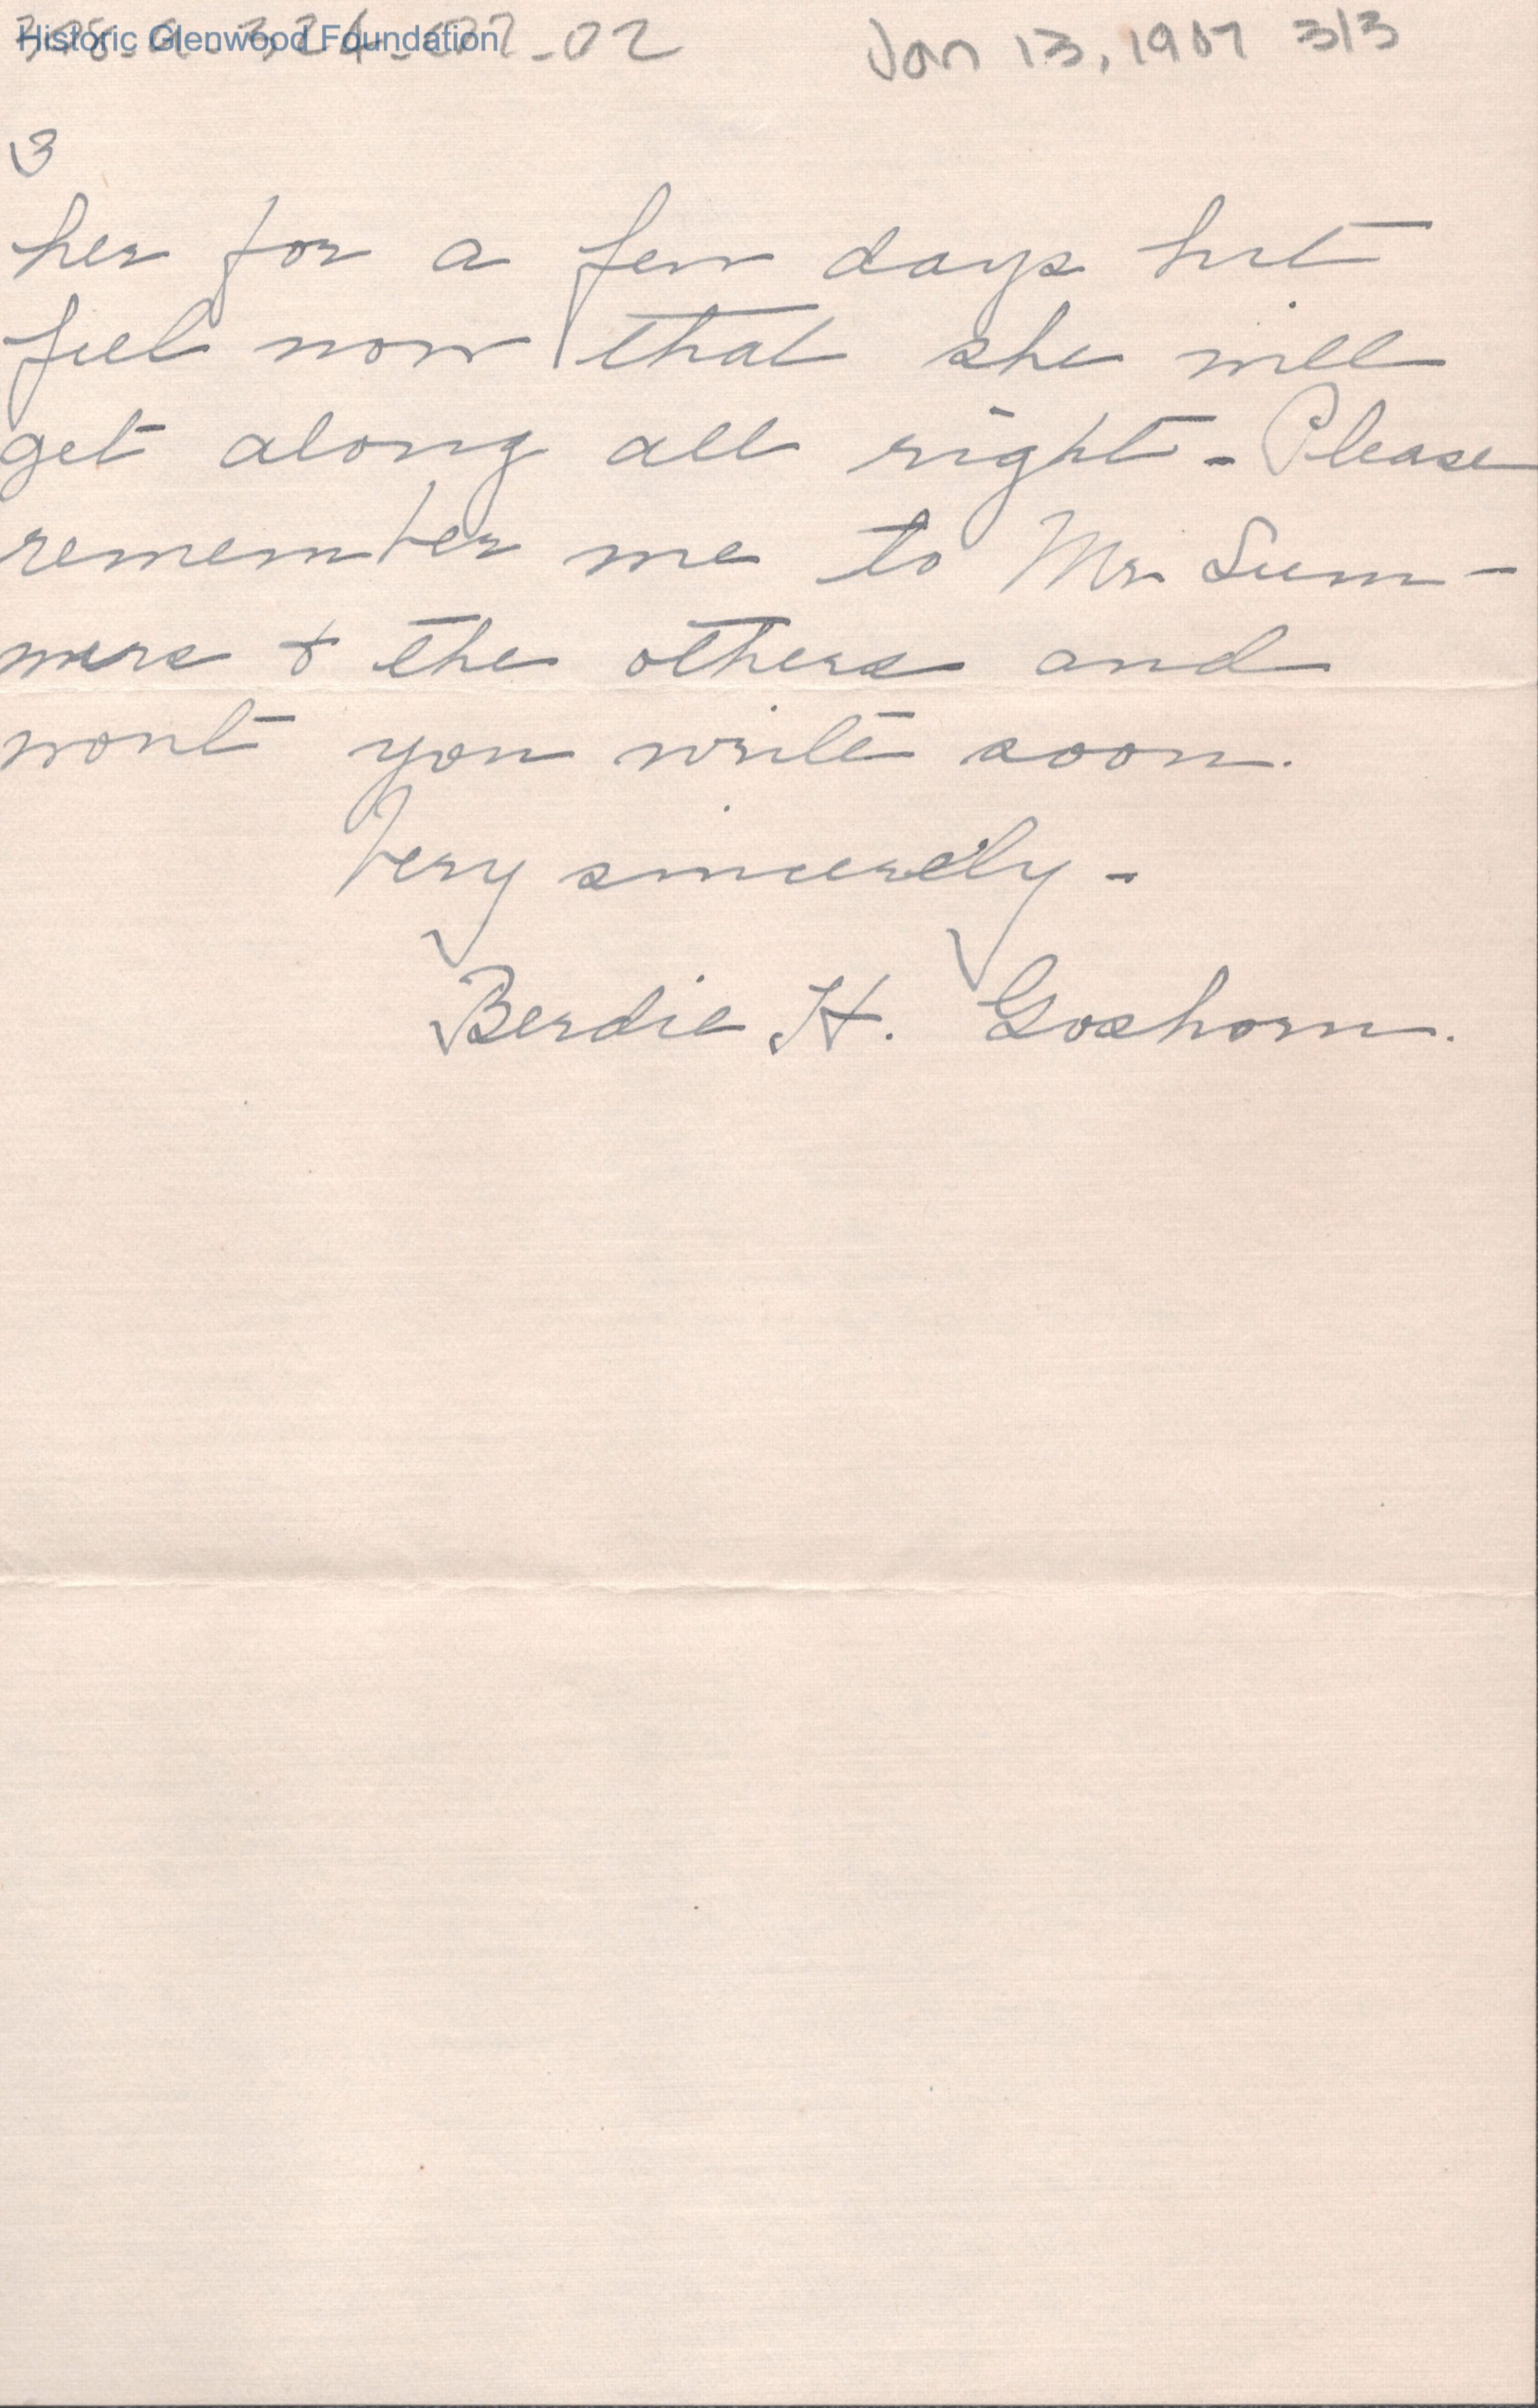 Historic Glenwood Foundation
02 Jan 13, 1907 3/3
3
her for a few days but
feel now that she will
get along all right - Please
remember me to Mr. Sum-
mers & the others and
wont you write soon.
Very sincerely -
Berdie H. Goshorn.